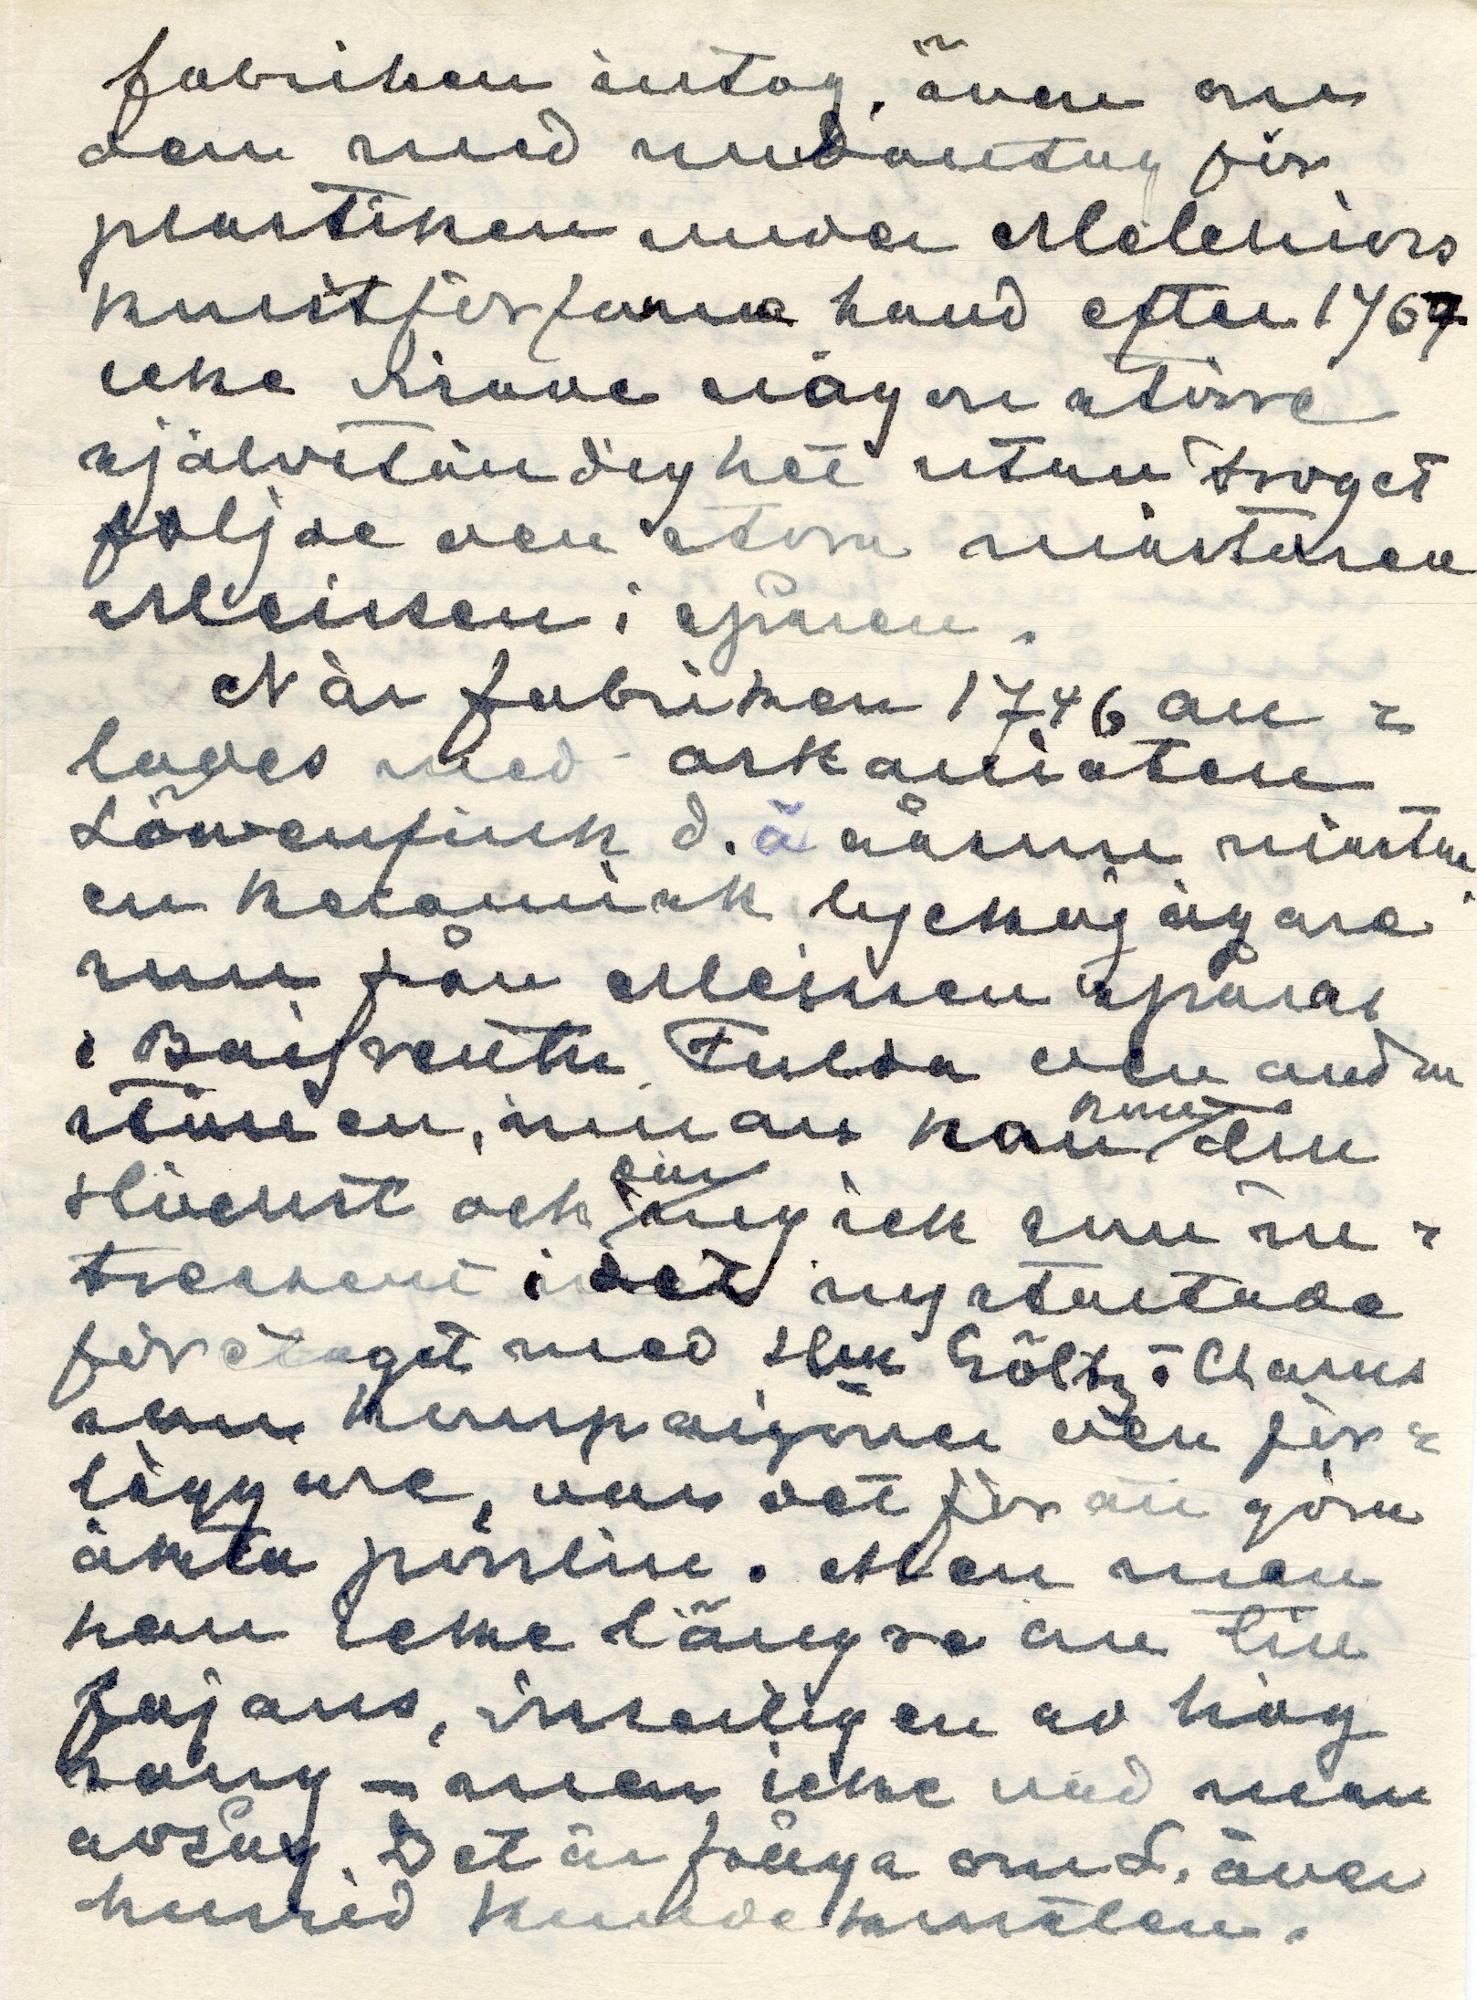 fabriken intog, även om
den med undantag för
plastiken under Melchiors
konstförfarna hand efter 1767
icke ägde någon större
självständighet utan troget
följde den stora mästaren
Meissen i spåren.
När fabriken 1746 an-
lades med arkanisten
Löwenfink d. ä såsom mästare
en keramisk lyckojägare
som från Meissen spåras
i Baijreuth, Fulda och andra
ställen, innan han den
Höchst och ingick som in-
tressent i det nystartade
företaget med Hrr Göltz &
som kompanjoner och för-
läggare, var det för att göra
äkta porslin. Men man
kom icke längre än till
fajans, visserligen av hög
rang – men icke vad man
avsåg. Det är fråga om L. även
kunde konsten.